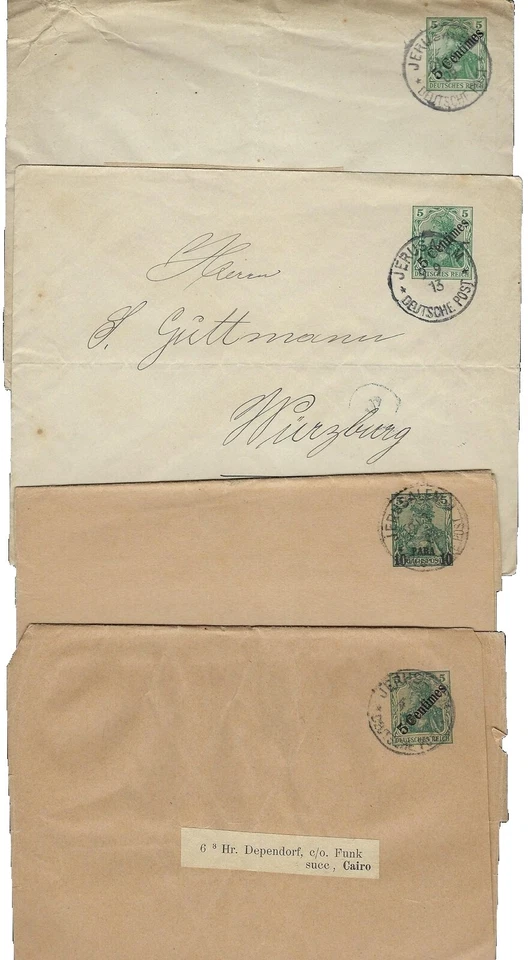 5 5
5 Centimes
DEUTSCHES REICH
DEUTSCHE
5 5
5 Centimes
DEUTSCHES REICH
9
13
DEUTSCHE POST
Herrn
S. Guttmann
Würzburg
JERUSALEM
5
PARA
10 10
REICHSPOST
5
5 Centimes
DEUTSCHES REICH
6 a Hr. Dependorf, c/o. Funk
succ, Cairo